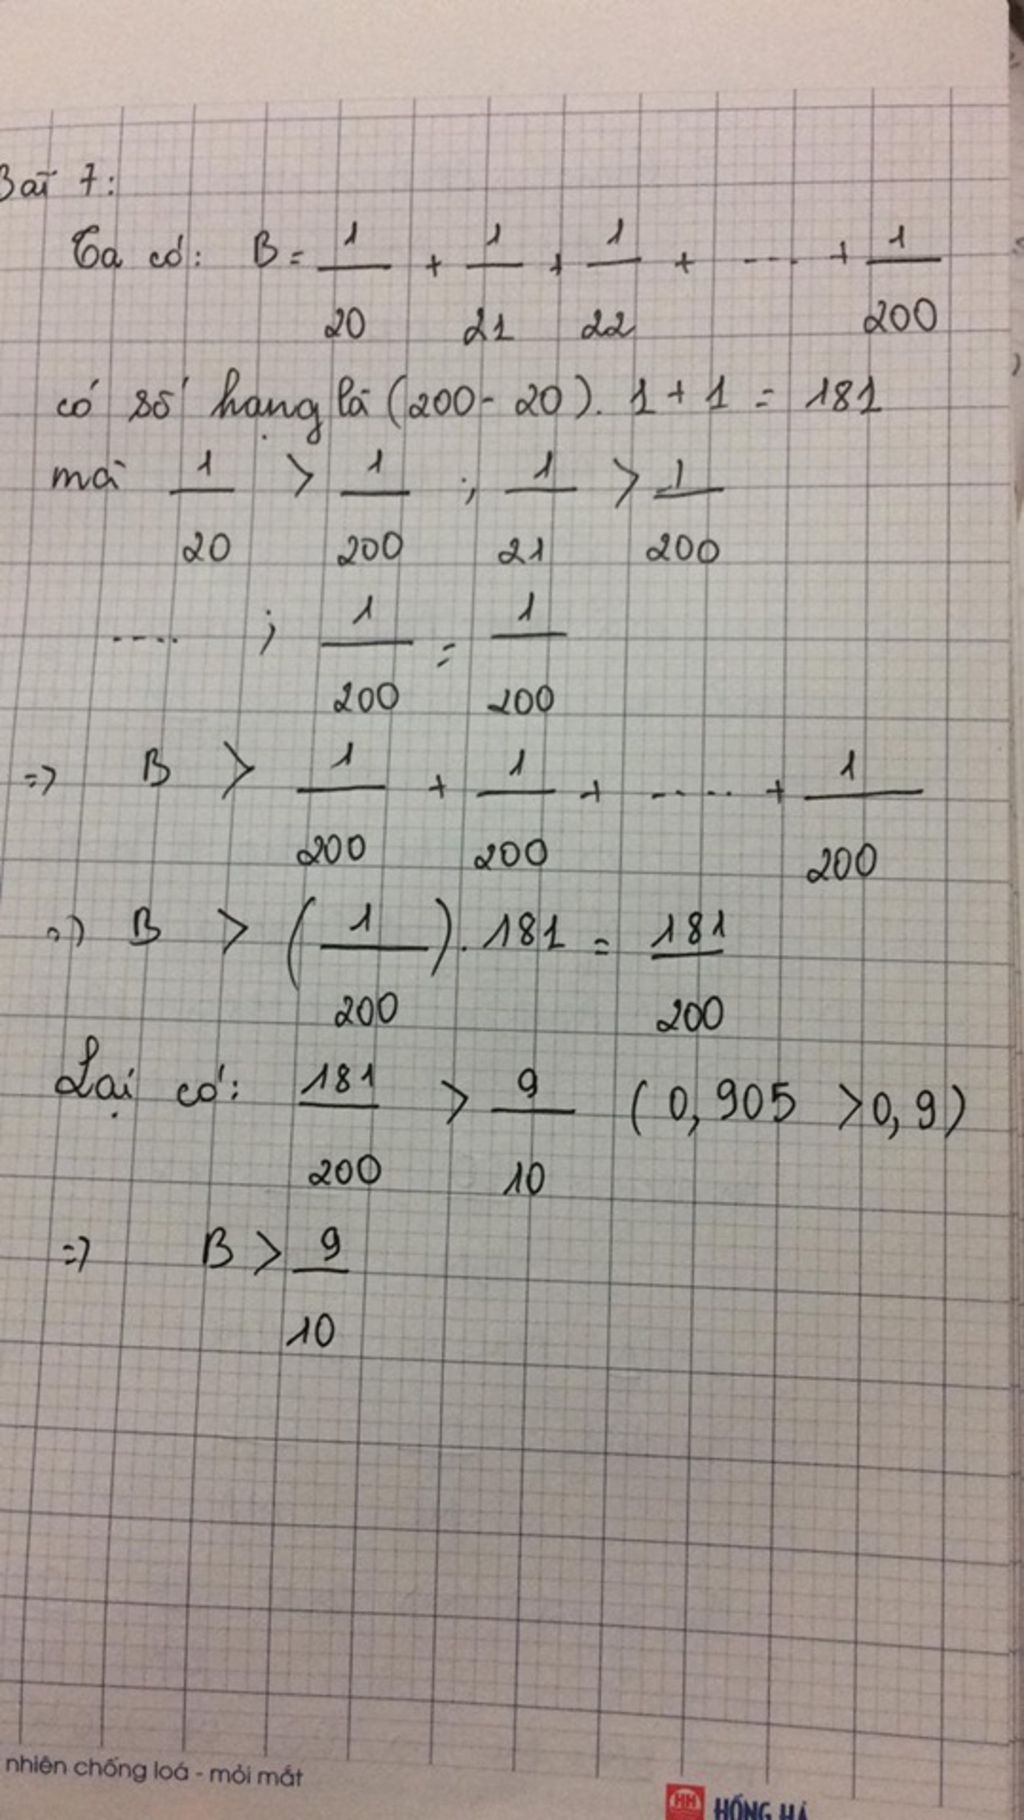 Bài 7:
Ta có: B = 1/20 + 1/21 + 1/22 + .... + 1/200
có số hạng là (200 - 20). 1 + 1 = 181
mà 1/20 > 1/200 ; 1/21 > 1/200
.... ; 1/200 = 1/200
=> B > 1/200 + 1/200 + ..... + 1/200
=> B > (1/200). 181 = 181/200
Lại có: 181/200 > 9/10 (0,905 > 0,9)
=> B > 9/10
nhiên chống loá - mỏi mắt
HH HỒNG HÀ